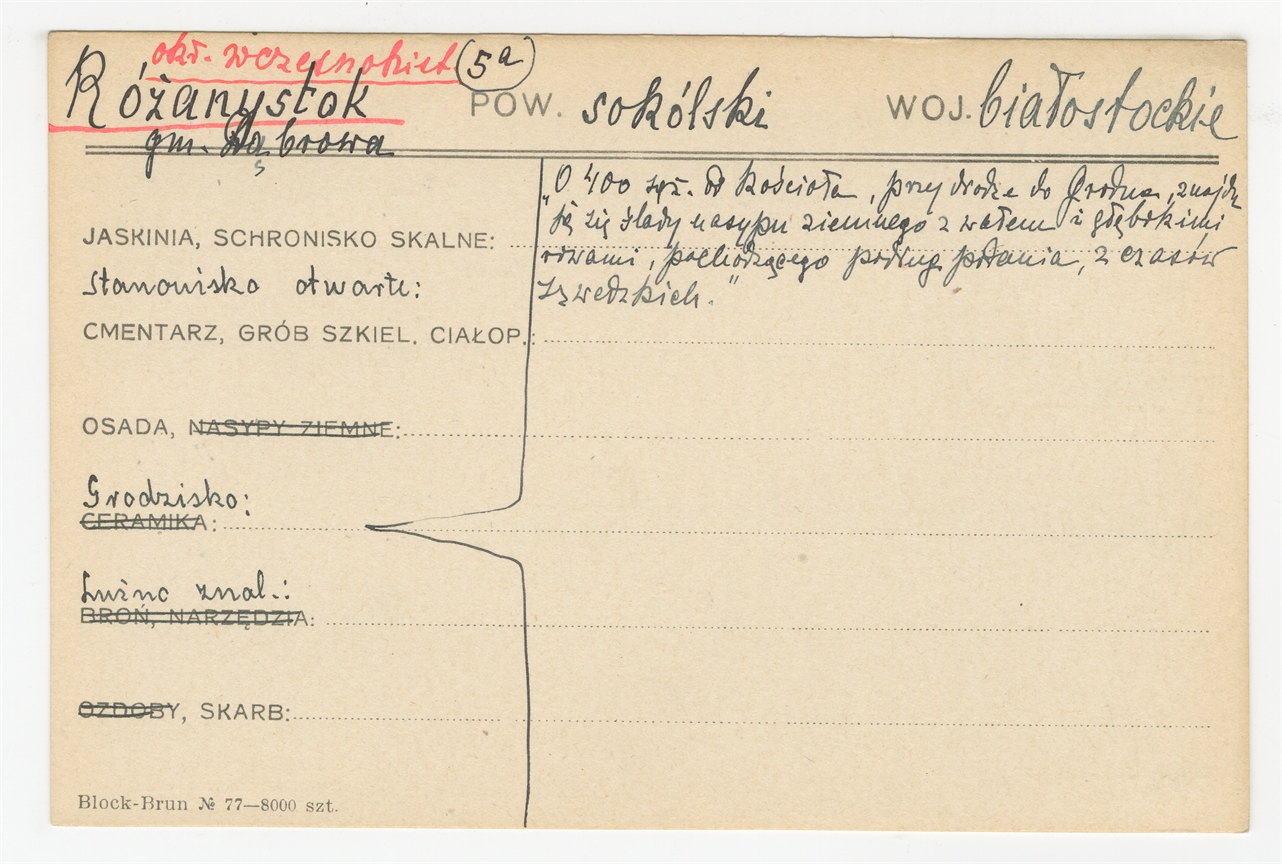 okr. wczesnohist (5a)
Różanystok POW. sokólski WOJ. białostockie
gm. Dąbrowa
"O 400 sąż. od Kościoła, przy drodze do Grodna, znajdu
JASKINIA, SCHRONISKO SKALNE: ją się ślady nasypu ziemnego z wałem i głębokimi
rowami, pochodzącego podług podania, z czasów
Stanowisko otwarte: szwedzkich."
CMENTARZ, GRÓB SZKIEL. CIAŁOP.:
OSADA, NASYPY ZIEMNE:
Grodzisko:
CERAMIKA:
Luźne znal.:
BROŃ, NARZĘDZIA:
OZDOBY, SKARB:
Block-Brun № 77—8000 szt.